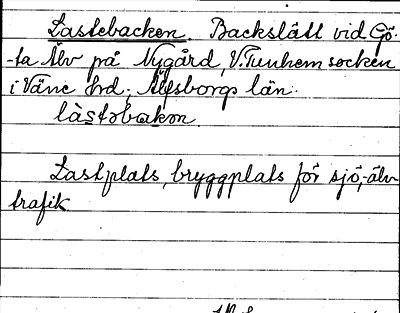 Lastebacken. Backslätt vid Gö-
-ta Älv på Nygård, V. Tunhem socken
i Väne hrd, Älfsborgs län.
làstəbakən
Lastplats, bryggplats för sjö-, älv-
trafik